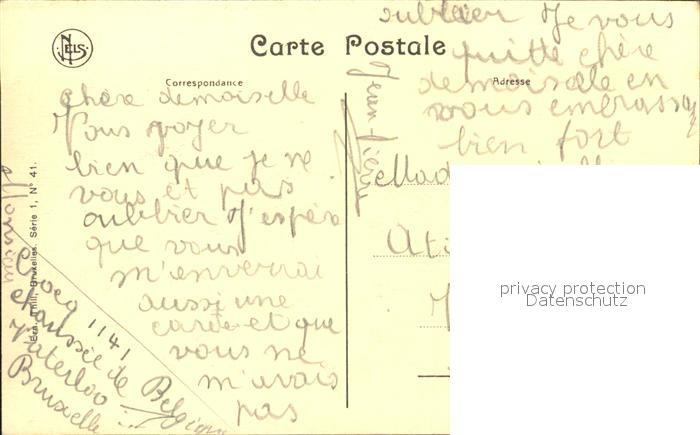 NELS
Carte Postale
Correspondance
Adresse
chère demoiselle
Vous voyer
bien que je ne
vous et pas
oubblier J'espère
que vous
m'enverrai
aussi une
carte et que
vous ne
m'avais
pas
oublier Je vous
quitte chère
demoiselle en
vous embrassan
bien fort
Jean-Pierre
Monsieur
Crocq 1141
chaussée de
Waterloo
Bruxelle
Belgique
Bruxelles. Série 1, N° 41.
privacy protection
Datenschutz